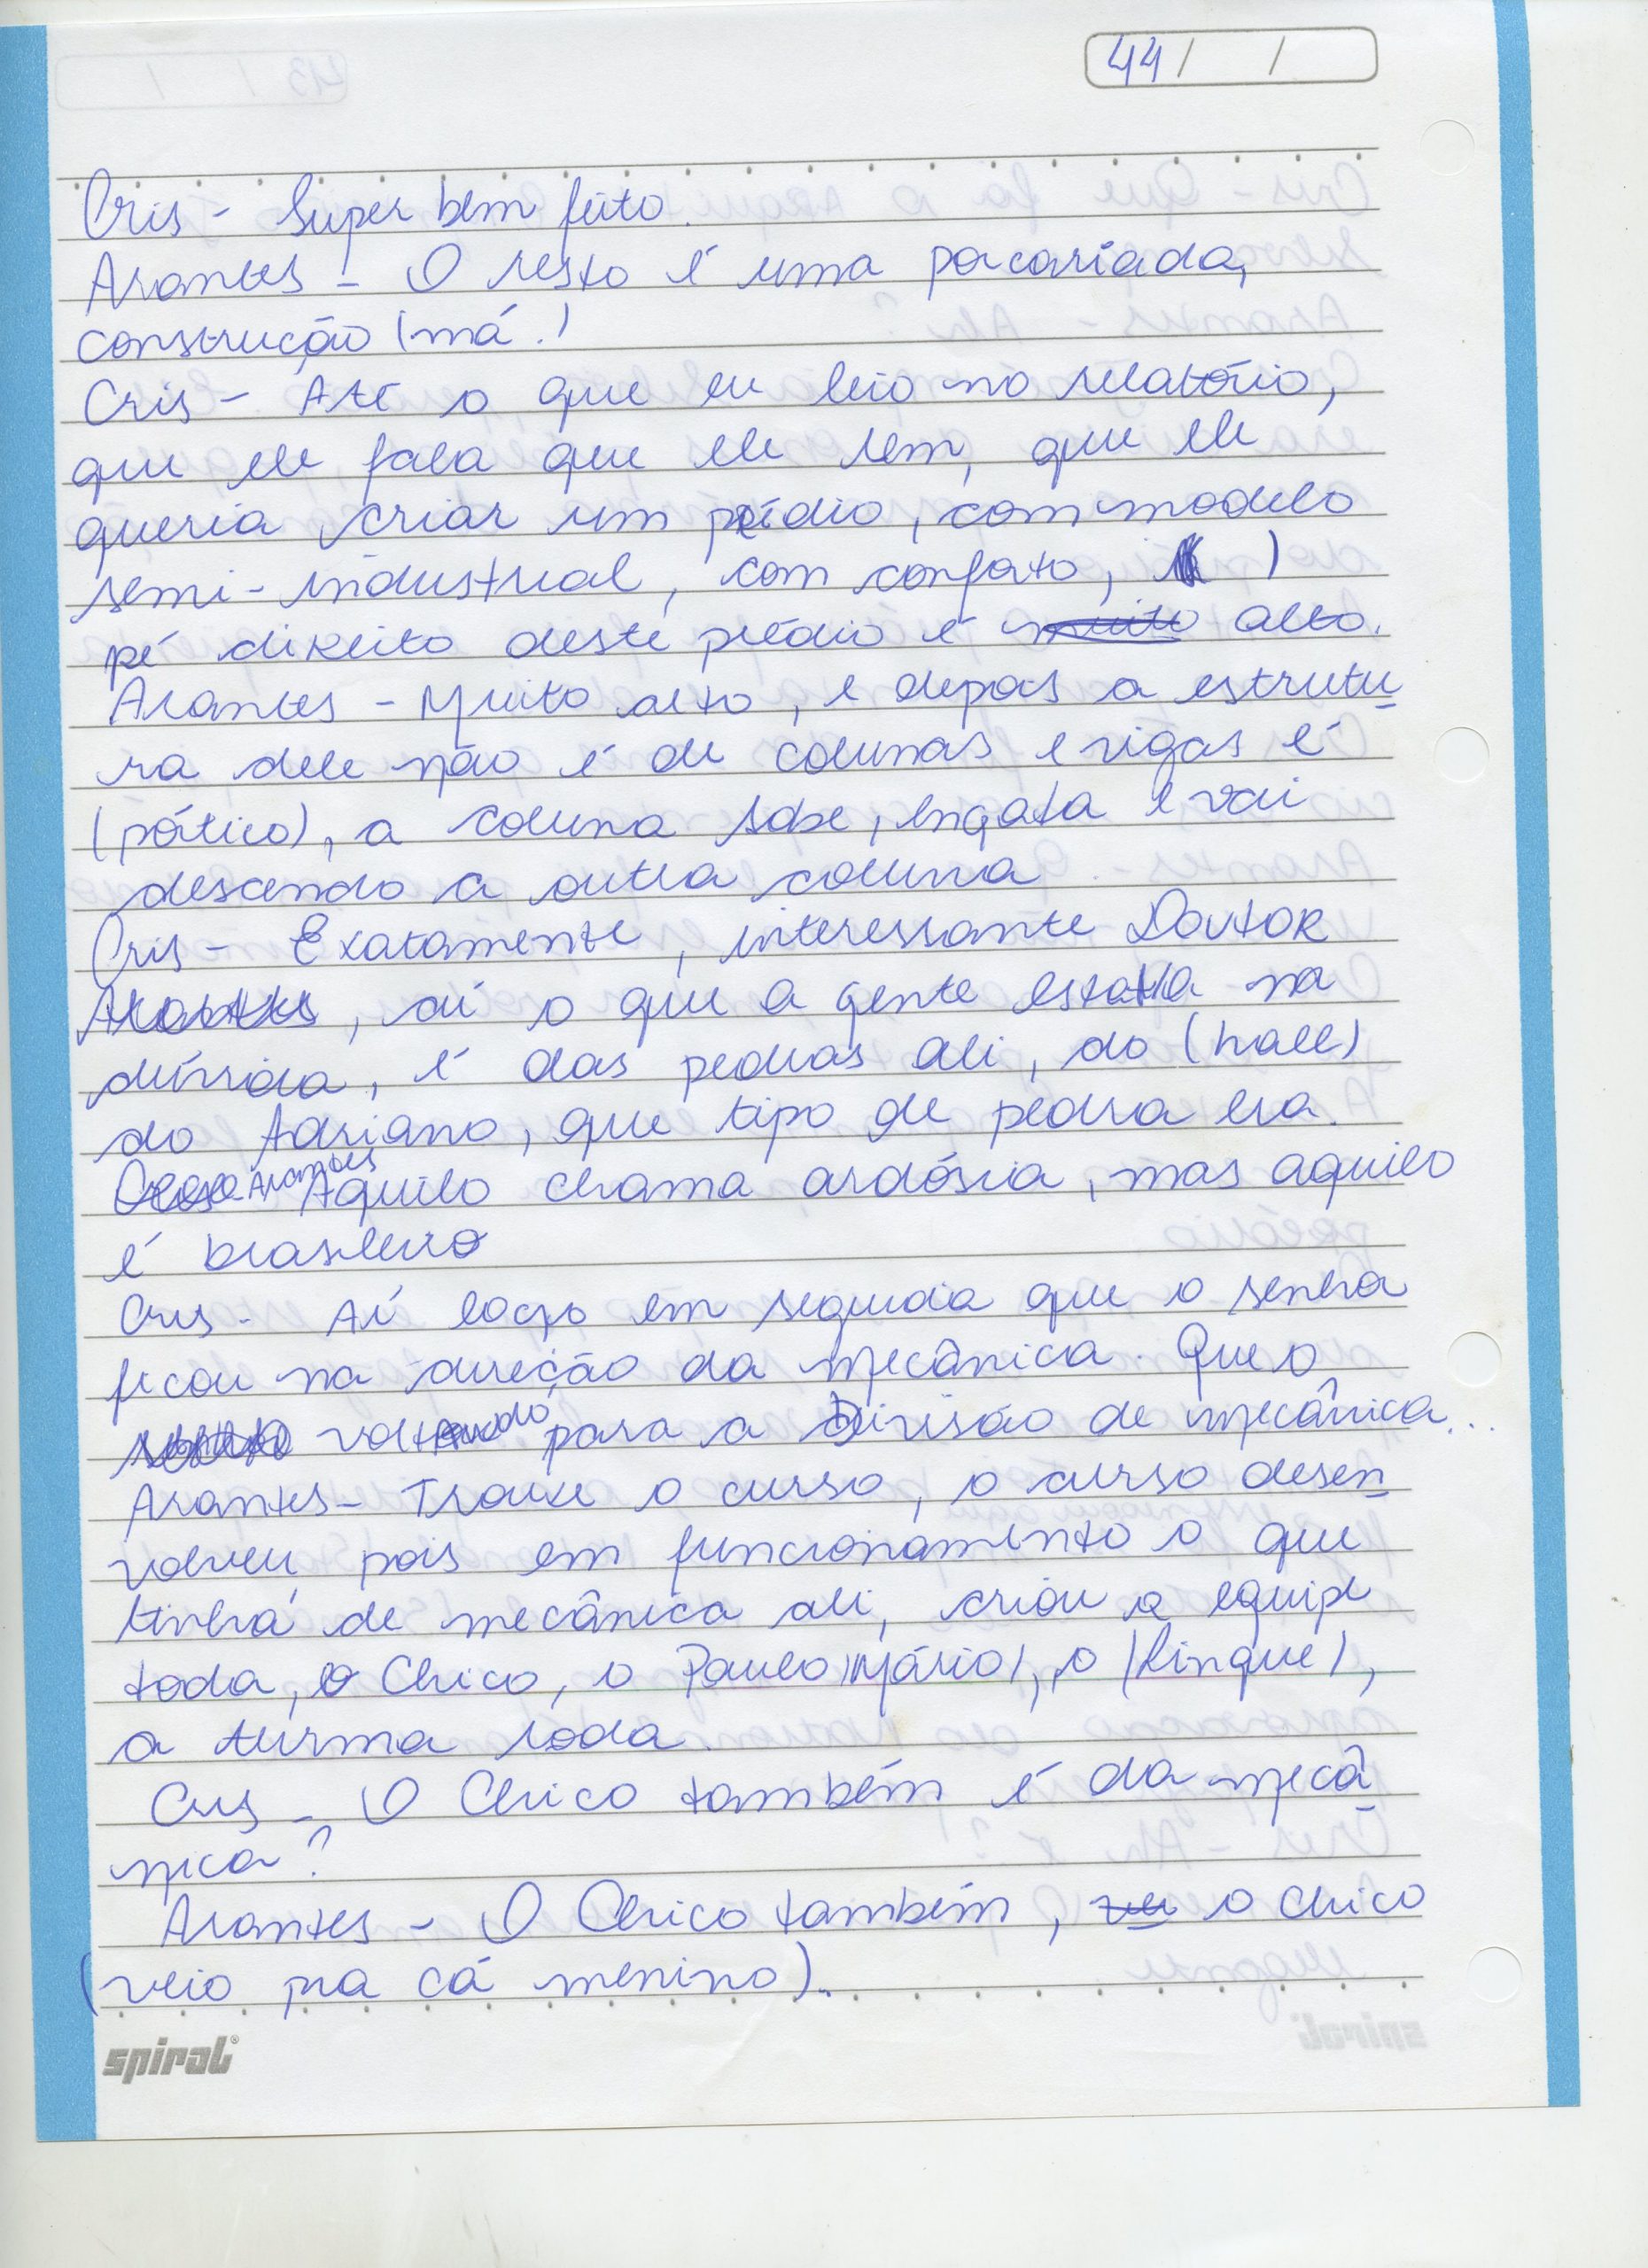 44/ /
Cris - Super bem feito.
Arantes - O resto é uma porcariada,
construção (má.)
Cris - Até o que eu leio no relatório,
que ele fala que ele tem, que ele
queria criar um prédio, com modelo
semi-industrial, com conforto, )
pé direito deste prédio é muito alto.
Arantes - Muito alto, e depois a estrutu
ra dele não é de colunas e vigas é
(pórtico), a coluna sobe, engata e vai
descendo a outra coluna
Cris - Exatamente, interessante Doutor
Arantes, aí o que a gente estava na
dúvida, é das pedras ali, do (hall)
do Adriano, que tipo de pedra era.
Arantes Aquilo chama ardósia, mas aquilo
é brasileiro
Cris - Aí logo em seguida que o senhor
ficou na direção da mecânica. Que o
voltando para a Divisão de mecânica...
Arantes - Trouxe o curso, o curso desen
volveu, pois em funcionamento o que
tinha de mecânica ali, criou a equipe
toda, o Chico, o Paulo (Mário), o (Ringue),
a turma toda.
Cris - O Chico também é da mecâ
nica?
Arantes - O Chico também, o Chico
(veio pra cá menino).
spiral®